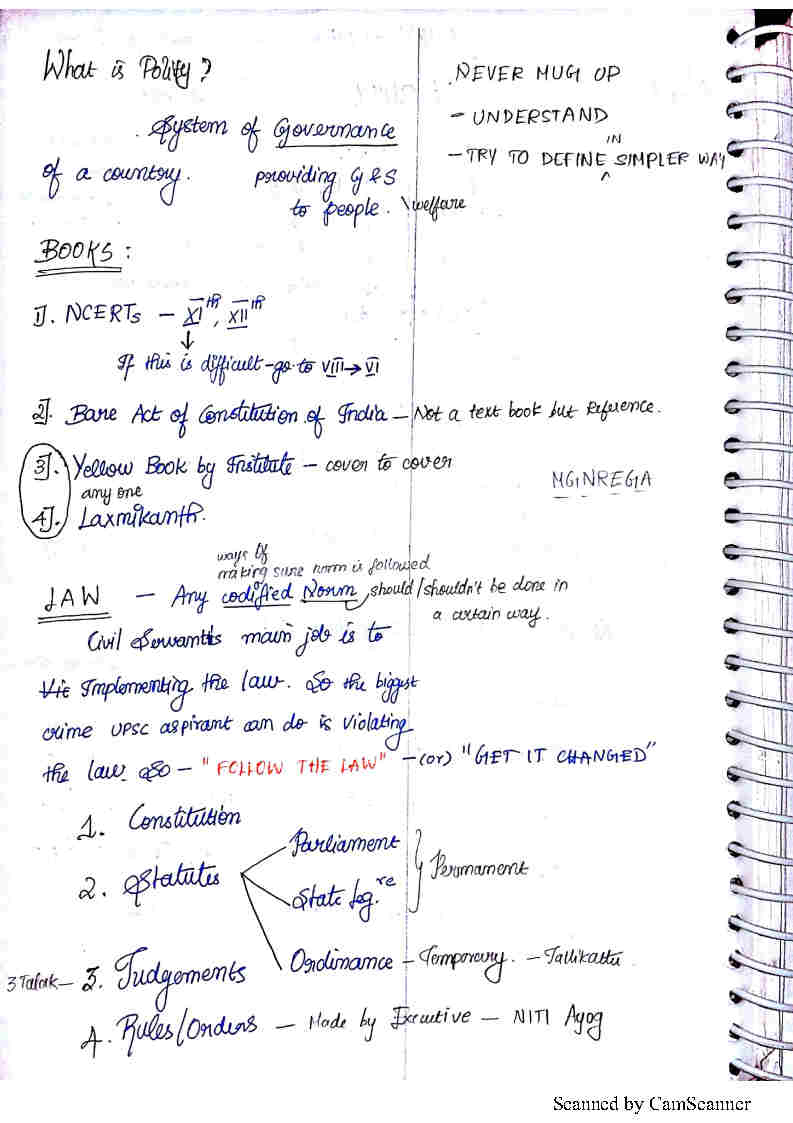 What is Polity?
NEVER MUG UP
- UNDERSTAND
IN
- TRY TO DEFINE ^ SIMPLER WAY
. System of Governance
of a country. providing G & S
to people. \welfare
BOOKS :
1]. NCERTs - XIth, XIIth
↓
If this is difficult - go to VIII → VI
2]. Bare Act of Constitution of India - Not a text book but Reference.
3]. Yellow Book by Institute - cover to cover
MGNREGA
any one
4]. Laxmikanth.
ways of
making sure norm is followed
LAW - Any codified Norm, should/shouldn't be done in
a certain way.
Civil Servants main job is to
Implementing the law. So the biggest
crime UPSC aspirant can do is violating
the law. So - "FOLLOW THE LAW" - (or) "GET IT CHANGED"
1. Constitution
2. Statutes
Parliament
State Leg.re
} Permanent
Ordinance - Temporary. - Jallikattu.
3 Talak - 3. Judgements
4. Rules/Orders - Made by Executive - NITI Ayog
Scanned by CamScanner